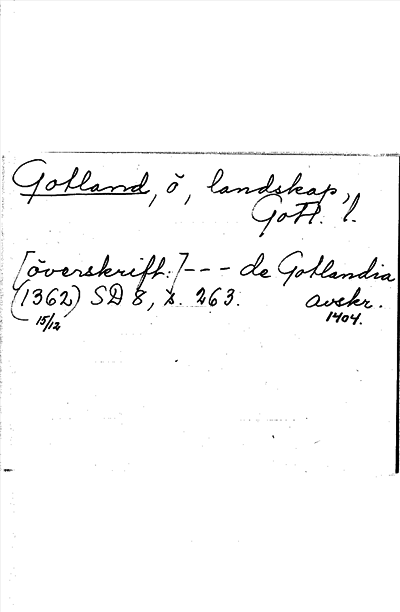 Gotland, ö, landskap,
Gotl. l.
[överskrift:] --- de Gotlandia
(1362) SD 8, s. 263. avskr.
15/12 1404.